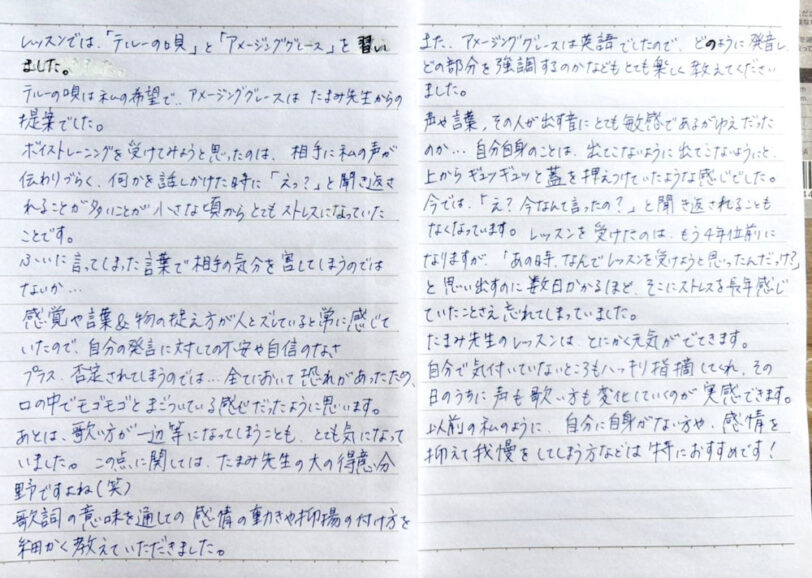 レッスンでは、「テルーの唄」と「アメージンググレース」を習い
ました。
テルーの唄は私の希望で、アメージンググレースは たまみ先生からの
提案でした。
ボイストレーニングを受けてみようと思ったのは、相手に私の声が
伝わりづらく、何かを話しかけた時に「えっ?」と聞き返さ
れることが多いことが小さな頃からとてもストレスになっていた
ことです。
ふいに言ってしまった言葉で相手の気分を害してしまうのでは
ないか…
感覚や言葉&物の捉え方が人とズレていると常に感じて
いたので、自分の発言に対しての不安や自信のなさ
プラス、否定されてしまうのでは…全てにおいて恐れがあったため、
口の中でモゴモゴとまごついている感じだったように思います。
あとは、歌い方が一辺等になってしまうことも、とても気になって
いました。この点に関しては、たまみ先生の大の得意分
野ですよね(笑)
歌詞の意味を通しての感情の動きや抑揚の付け方を
細かく教えていただきました。
また、アメージンググレースは英語でしたので、どのように発音し、
どの部分を強調するのかなどもとても楽しく教えてください
ました。
声や言葉、その人が出す音にとても敏感であるがゆえだった
のか…自分自身のことは、出てこないように出てこないようにと、
上からギュッギュッと蓋を押えつけていたような感じでした。
今では、「え?今なんて言ったの?」と聞き返されることも
なくなっています。レッスンを受けたのは、もう4年位前に
なりますが、「あの時、なんでレッスンを受けようと思ったんだっけ?」
と思い出すのに数日かかるほど、そこにストレスを長年感じ
ていたことさえ忘れてしまっていました。
たまみ先生のレッスンは、とにかく元気がでてきます。
自分で気付いていないところもハッキリ指摘してくれ、その
日のうちに声も歌い方も変化していくのが実感できます。
以前の私のように、自分に自身がない方や、感情を
抑えて我慢をしてしまう方などは特におすすめです!